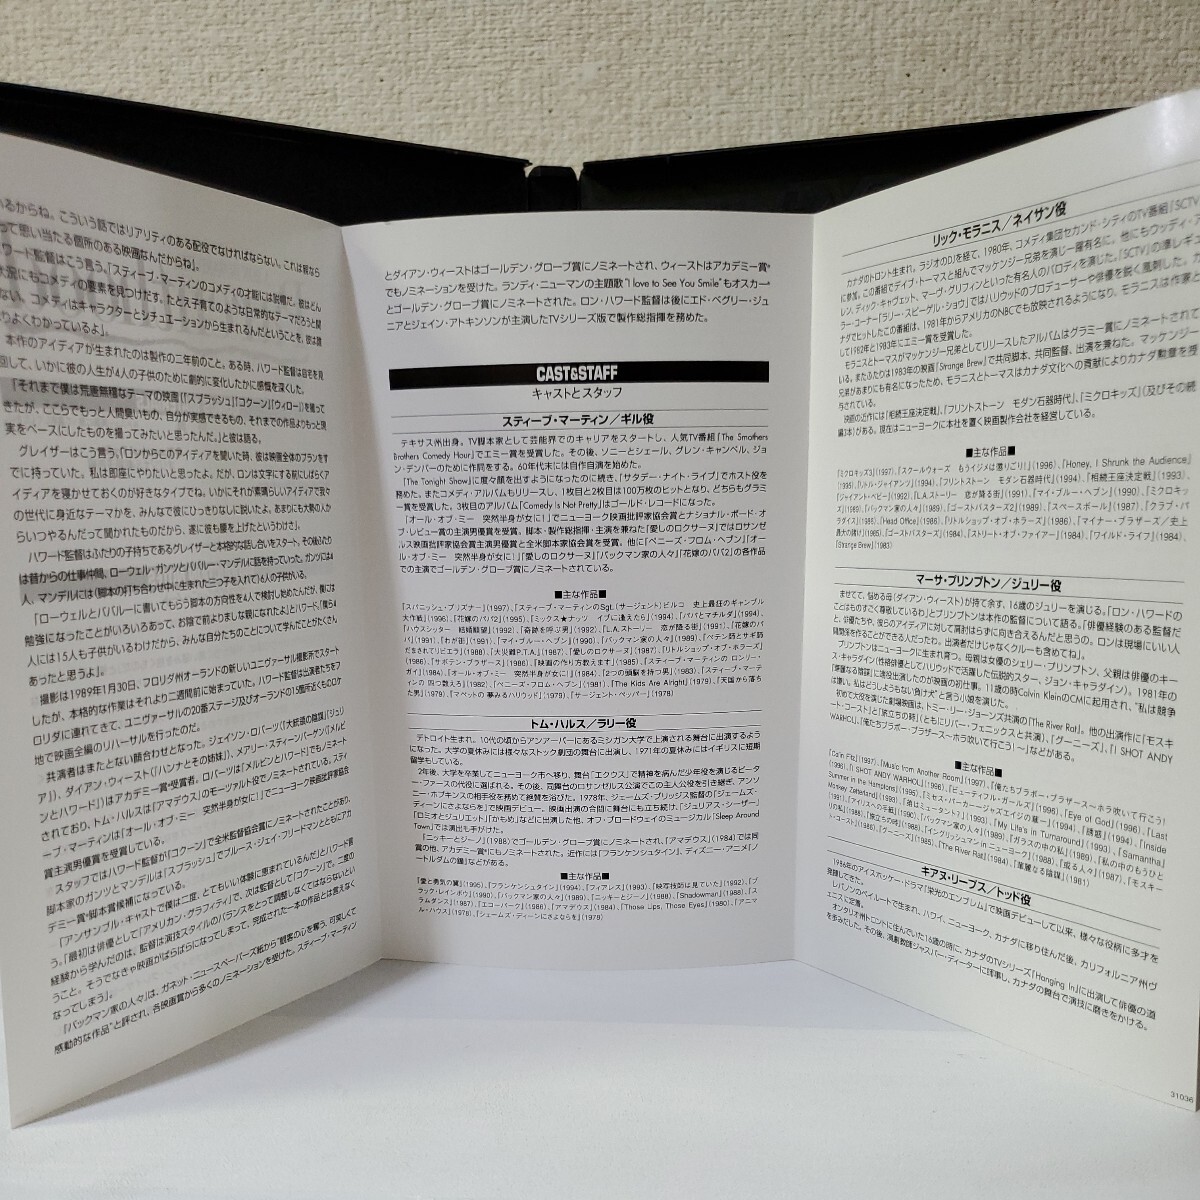 いるからね。こういう話ではリアリティのある配役でなければならない。これは観なら
って思い当たる個所のある映画なんだからね」。
ワード監督はこう言う。「スティーブ・マーティンのコメディの才能には脱帽だ。彼はどん
状況にもコメディの要素を見つけだす。たとえ子育てのような日常的なテーマだろうと関
ない。コメディはキャラクターとシチュエーションから生まれるんだということを、彼は誰
りよくわかっているよ」。
本作のアイディアが生まれたのは製作の二年前のこと。ある時、ハワード監督は自宅を見
回して、いかに彼の人生が4人の子供のために劇的に変化したかに感慨を深くした。
「それまで僕は荒唐無稽なテーマの映画(「スプラッシュ」「コクーン」「ウィロー」)を撮って
きたが、ここらでもっと人間臭いもの、自分が実感できるもの、それまでの作品よりもっと現
実をベースにしたものを撮ってみたいと思ったんだ。」と彼は語る。
グレイザーはこう言う。「ロンからこのアイディアを聞いた時、彼は映画全体のプランをす
でに持っていた。私は即座にやりたいと思ったよ。だが、ロンは文字にする前にしばらくア
イディアを寝かせておくのが好きなタイプでね。いかにそれが素晴らしいアイディアで我々
の世代に身近なテーマかを、みんなで彼にひっきりなしに説いたよ。あまりにも大勢の人か
らいつやるんだって聞かれたものだから、遂に彼も腰を上げたというわけさ」。
ハワード監督はふたりの子持ちであるグレイザーと本格的な話し合いをスタート。その後ふたり
は昔からの仕事仲間、ローウェル・ガンツとババルー・マンデルに話を持っていった。ガンツには4
人、マンデルには(脚本の打ち合わせ中に生まれた三つ子を入れて)6人の子供がいる。
「ローウェルとババルーに書いてもらう脚本の方向性を4人で検討し始めたんだが、僕には
勉強になったことがいろいろあって、お陰で前よりましな親になれたよ」とハワード。「僕ら4
人には15人も子供がいるわけだから、みんな自分たちのことについて学んだことがたくさん
あったと思うよ」。
撮影は1989年1月30日、フロリダ州オーランドの新しいユニヴァーサル撮影所でスタート
したが、本格的な作業はそれより二週間前に始まっていた。ハワード監督は出演者たちをフ
ロリダに連れてきて、ユニヴァーサルの20番ステージ及びオーランドの15箇所近くものロケ
地で映画全編のリハーサルを行ったのだ。
共演者はまたとない顔合わせとなった。ジェイソン・ロバーツ(「大統領の陰謀」「ジュリ
ア」)、ダイアン・ウィースト(「ハンナとその姉妹」)、メアリー・スティーンバーゲン(「メルビ
ンとハワード」)はアカデミー賞受賞者。ロバーツは「メルビンとハワード」でもノミネート
されており、トム・ハルスは「アマデウス」のモーツァルト役でノミネートされている。スティ
ーブ・マーティンは「オール・オブ・ミー 突然半身が女に!」でニューヨーク映画批評家協会
賞主演男優賞を受賞している。
スタッフではハワード監督が「コクーン」で全米監督協会賞にノミネートされたことがあり、
脚本家のガンツとマンデルは「スプラッシュ」でブルース・ジェイ・フリードマンとともにアカ
デミー賞脚本賞候補になっている。
「アンサンブル・キャストで僕は二度、とてもいい体験に恵まれているんだ」とハワード言
う。「最初は俳優として「アメリカン・グラフィティ」で、次は監督として「コクーン」で。二度の
経験から学んだのは、監督は演技スタイルのバランスをとって調整しなくてはならないとい
うこと。そうでなきゃ映画がばらばらになってしまって、完成された一本の作品とは言えなく
なってしまう」。
「バックマン家の人々」は、ガネット・ニュースペーパーズ紙から“観客の心を奪う、可愛くて
感動的な作品”と評され、各映画賞から多くのノミネーションを受けた。スティーブ・マーティン
とダイアン・ウィーストはゴールデン・グローブ賞にノミネートされ、ウィーストはアカデミー賞®
でもノミネーションを受けた。ランディ・ニューマンの主題歌“I love to See You Smile”もオスカー®
とゴールデン・グローブ賞にノミネートされた。ロン・ハワード監督は後にエド・ベグリー・ジュ
ニアとジェイン・アトキンソンが主演したTVシリーズ版で製作総指揮を務めた。
CAST&STAFF
キャストとスタッフ
スティーブ・マーティン/ギル役
テキサス州出身。TV脚本家として芸能界でのキャリアをスタートし、人気TV番組「The Smothers
Brothers Comedy Hour」でエミー賞を受賞した。その後、ソニーとシェール、グレン・キャンベル、ジョ
ン・デンバーのために作間をする。60年代末には自作自演を始めた。
「The Tonight Show」に度々顔を出すようになったのに続き、「サタデー・ナイト・ライブ」でホスト役を
務めた。またコメディ・アルバムもリリースし、1枚目と2枚目は100万枚のヒットとなり、どちらもグラミ
ー賞を受賞した。3枚目のアルバム「Comedy Is Not Pretty」はゴールド・レコードになった。
「オール・オブ・ミー 突然半身が女に!」でニューヨーク映画批評家協会賞とナショナル・ボード・オ
ブ・レビュー賞の主演男優賞を受賞。脚本・製作総指揮・主演を兼ねた「愛しのロクサーヌ」ではロサンゼ
ルス映画批評家協会賞主演男優賞と全米脚本家協会賞を受賞。他に「ペニーズ・フロム・ヘブン」「オー
ル・オブ・ミー 突然半身が女に!」「愛しのロクサーヌ」「バックマン家の人々」「花嫁のパパ2」の各作品
での主演でゴールデン・グローブ賞にノミネートされている。
■主な作品■
「スパニッシュ・プリズナー」(1997)、「スティーブ・マーティンのSgt.(サージェント)ビルコ 史上最狂のギャンブル
大作戦」(1996)、「花嫁のパパ2」(1995)、「ミックス★ナッツ イブに逢えたら」(1994)、「パパとマチルダ」(1994)、
「ハウスシッター 結婚願望」(1992)、「奇跡を呼ぶ男」(1992)、「L.A.ストーリー 恋が降る街」(1991)、「花嫁のパ
パ」(1991)、「わが街」(1991)、「マイ・ブルー・ヘブン」(1990)、「バックマン家の人々」(1989)、「ペテン師とサギ師
だまされてリビエラ」(1988)、「大災難P.T.A.」(1987)、「愛しのロクサーヌ」(1987)、「リトルショップ・オブ・ホラーズ」
(1986)、「サボテン・ブラザース」(1986)、「映画の作り方教えます」(1985)、「スティーブ・マーティンの ロンリー・
ガイ」(1984)、「オール・オブ・ミー 突然半身が女に!」(1984)、「2つの頭脳を持つ男」(1983)、「スティーブ・マー
ティンの 四つ数えろ」(1982)、「ペニーズ・フロム・ヘブン」(1981)、「The Kids Are Alright」(1979)、「天国から落ち
た男」(1979)、「マペットの夢みるハリウッド」(1979)、「サージェント・ペッパー」(1978)
トム・ハルス/ラリー役
デトロイト生まれ。10代の頃からアンアーバーにあるミシガン大学で上演される舞台に出演するよう
になった。大学の夏休みには様々なストック劇団の舞台に出演し、1971年の夏休みにはイギリスに短期
留学もしている。
2年後、大学を卒業してニューヨーク市へ移り、舞台「エクウス」で精神を病んだ少年役を演じるピータ
ー・ファースの代役に選ばれる。その後、同舞台のロサンゼルス公演でこの主人公役を引き継ぎ、アンソ
ニー・ホプキンスの相手役を務めて絶賛を浴びた。1978年、ジェームズ・ブリッジス監督の「ジェームズ・
ディーンにさよならを」で映画デビュー。映画出演の合間に舞台にも立ち続け、「ジュリアス・シーザー」
「ロミオとジュリエット」「かもめ」などに出演した他、オフ・ブロードウェイのミュージカル「Sleep Around
Town」では演出も手がけた。
「ニッキーとジーノ」(1988)でゴールデン・グローブ賞にノミネートされ、「アマデウス」(1984)では同
賞の他、アカデミー賞®にもノミネートされた。近作には「フランケンシュタイン」、ディズニー・アニメ「ノ
ートルダムの鐘」などがある。
■主な作品■
「愛と勇気の翼」(1995)、「フランケンシュタイン」(1994)、「フィアレス」(1993)、「映写技師は見ていた」(1992)、「ブ
ラック・レインボウ」(1990)、「バックマン家の人々」(1989)、「ニッキーとジーノ」(1988)、「Shadowman」(1988)、「ス
ラムダンス」(1987)、「エコーパーク」(1986)、「アマデウス」(1984)、「Those Lips, Those Eyes」(1980)、「アニマ
ル・ハウス」(1978)、「ジェームズ・ディーンにさよならを」(1978)
リック・モラニス/ネイサン役
カナダのトロント生まれ。ラジオのDJを経て、1980年、コメディ集団セカンド・シティのTV番組「SCTV
に参加。この番組でデイブ・トーマスと組んでマッケンジー兄弟を演じ一躍有名に。他にもウッディ・ア
レン、ディック・キャヴェット、マーヴ・グリフィンといった有名人のパロディを演じた。「SCTV」の準レギュ
ラー・コーナー「ラリー・スピーゲル・ショウ」ではハリウッドのプロデューサーや俳優を鋭く風刺した。カ
ナダでヒットしたこの番組は、1981年からアメリカのNBCでも放映されるようになり、モラニスは作家と
して1982年と1983年にエミー賞を受賞した。
モラニスとトーマスがマッケンジー兄弟としてリリースしたアルバムはグラミー賞にノミネートされて
いる。またふたりは1983年の映画「Strange Brew」で共同脚本、共同監督、出演を兼ねた。マッケンジー
兄弟があまりにも有名になったため、モラニスとトーマスはカナダ文化への貢献によりカナダ勲章を授
与されている。
映画の近作には「相続王座決定戦」、「フリントストーン モダン石器時代」、「ミクロキッズ」(及びその続
編3本)がある。現在はニューヨークに本社を置く映画製作会社を経営している。
■主な作品■
「ミクロキッズ3」(1997)、「スクールウォーズ もうイジメは懲りごり!」(1996)、「Honey, I Shrunk the Audience」
(1995)、「リトル・ジャイアンツ」(1994)、「フリントストーン モダン石器時代」(1994)、「相続王座決定戦」(1993)、
「ジャイアント・ベビー」(1992)、「L.A.ストーリー 恋が降る街」(1991)、「マイ・ブルー・ヘブン」(1990)、「ミクロキッ
ズ」(1989)、「バックマン家の人々」(1989)、「ゴーストバスターズ2」(1989)、「スペースボール」(1987)、「クラブ・パ
ラダイス」(1986)、「Head Office」(1986)、「リトルショップ・オブ・ホラーズ」(1986)、「マイナー・ブラザーズ/史上
最大の賭け」(1985)、「ゴーストバスターズ」(1984)、「ストリート・オブ・ファイアー」(1984)、「ワイルド・ライフ」(1984)、
「Strange Brew」(1983)
マーサ・プリンプトン/ジュリー役
ませてて、悩める母(ダイアン・ウィースト)が持て余す、16歳のジュリーを演じる。「ロン・ハワードの
ことはものすごく尊敬しているわ」とプリンプトンは本作の監督について語る。「俳優経験のある監督だ
と、俳優たちや、彼らのアイディアに対して肩肘はらずに向き合えるんだと思うの。ロンは現場にいい人
間関係を作ることができる人だったわ。出演者だけじゃなくクルーも含めてね」。
プリンプトンはニューヨークに生まれ育つ。母親は女優のシェリー・プリンプトン、父親は俳優のキー
ス・キャラダイン(性格俳優としてハリウッドで活躍した伝説的スター、ジョン・キャラダイン)。1981年の
「華麗なる陰謀」に端役出演したのが映画の初仕事。11歳の時Calvin KleinのCMに起用され、“私は競争
は嫌い。私はどうしようもない“負け犬””と言う小娘を演じた。
初めて大役を演じた劇場映画は、トミー・リー・ジョーンズ共演の「The River Rat」。他の出演作に「モスキ
ート・コースト」と「旅立ちの時」(ともにリバー・フェニックスと共演)、「グーニーズ」、「I SHOT ANDY
WARHOL」、「俺たちブラボー・ブラザース~ホラ吹いて行こう!~」などがある。
■主な作品■
「Colin Fitz」(1997)、「Music from Another Room」(1997)、「俺たちブラボー・ブラザース~ホラ吹いて行こう!
(1996)、「I SHOT ANDY WARHOL」(1996)、「ビューティフル・ガールズ」(1996)、「Eye of God」(1996)、「Last
Summer in the Hamptons」(1995)、「ミセス・パーカー/ジャズエイジの華」(1994)、「誘惑」(1994)、「Inside
Monkey Zetterland」(1993)、「弟はミュータント?」(1993)、「My Life's in Turnaround」(1993)、「Samantha」
(1991)、「アイリスへの手紙」(1990)、「バックマン家の人々」(1989)、「ガラスの中の私」(1989)、「私の中のもうひと
りの私」(1988)、「旅立ちの時」(1988)、「イングリッシュマン in ニューヨーク」(1988)、「或る人々」(1987)、「モスキー
ト・コースト」(1986)、「グーニーズ」(1985)、「The River Rat」(1984)、「華麗なる陰謀」(1981)
キアヌ・リーブス/トッド役
1986年のアイスホッケー・ドラマ「栄光のエンブレム」で映画デビューして以来、様々な役柄に多才を
発揮してきた。
レバノンのベイルートで生まれ、ハワイ、ニューヨーク、カナダに移り住んだ後、カリフォルニア州ヴ
ェニスに定着。
オンタリオ州トロントに住んでいた16歳の時に、カナダのTVシリーズ「Hanging In」に出演して俳優の道
を歩みだした。その後、演劇教師ジャスパー・ディーターに師事し、カナダの舞台で演技に磨きをかける。
31036